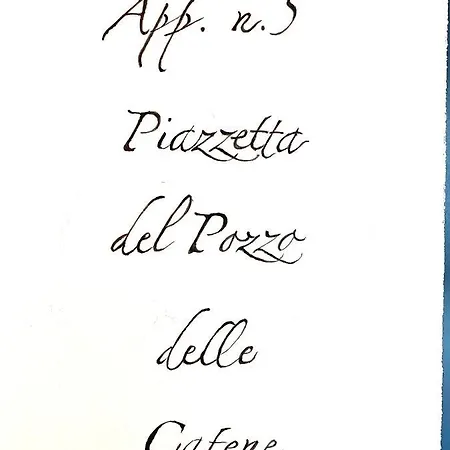 App. n.5
Piazzetta
del Pozzo
delle
Catene